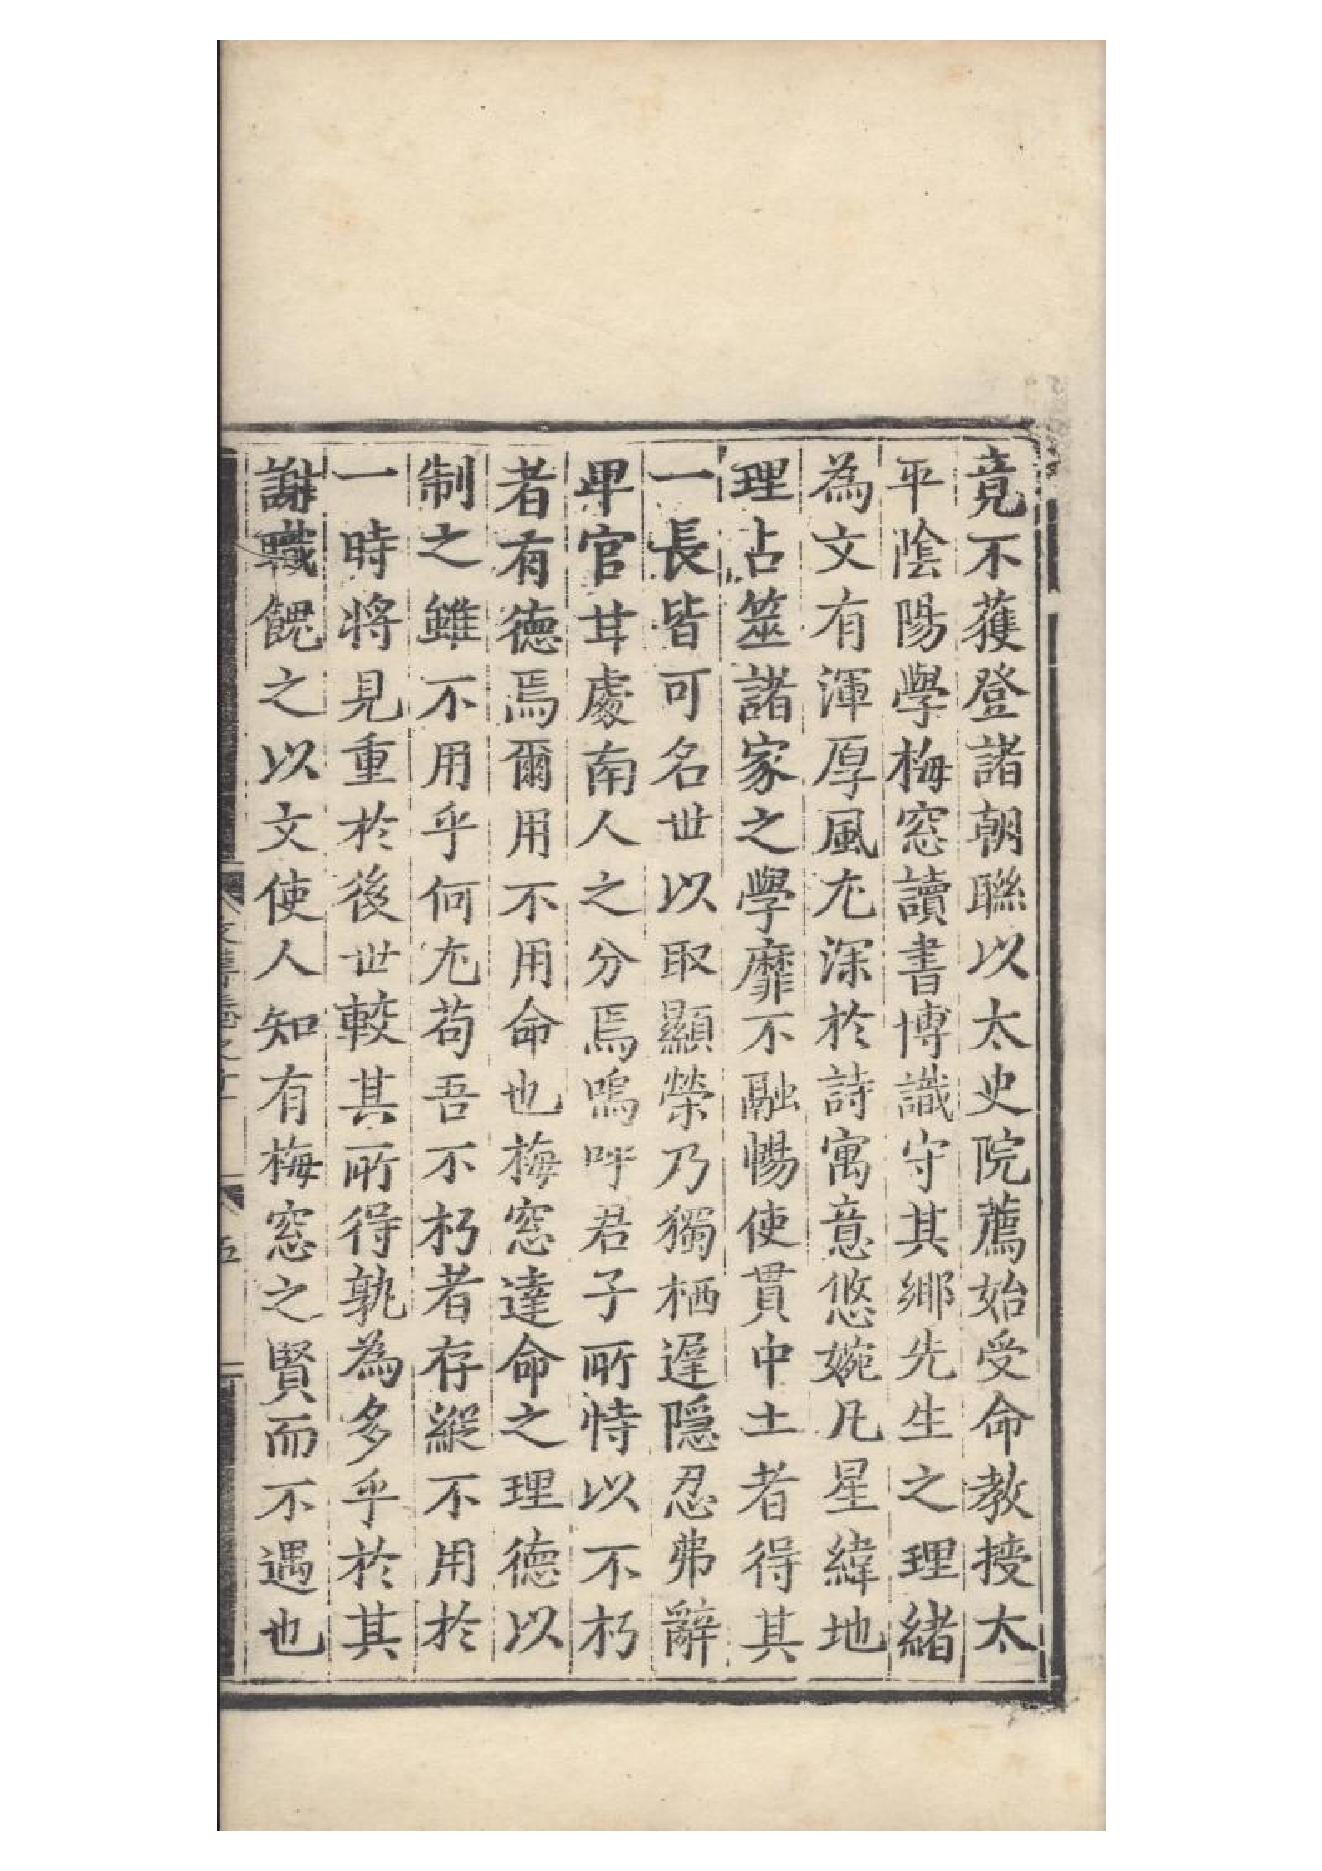 竟不獲登諸朝聯以太史院薦始受命教授太
平陰陽學梅窓讀書博識守其鄉先生之理緒
為文有渾厚風尤深於詩寓意悠婉凡星緯地
理占筮諸家之學靡不融暢使貫中土者得其
一長皆可名世以取顯榮乃獨栖遲隱忍弗辭
卑官甘處南人之分焉嗚呼君子所恃以不朽
者有德焉爾用不用命也梅窓達命之理德以
制之雖不用乎何尤苟吾不朽者存縱不用於
一時將見重於後世較其所得孰為多乎於其
謝職餽之以文使人知有梅窓之賢而不遇也